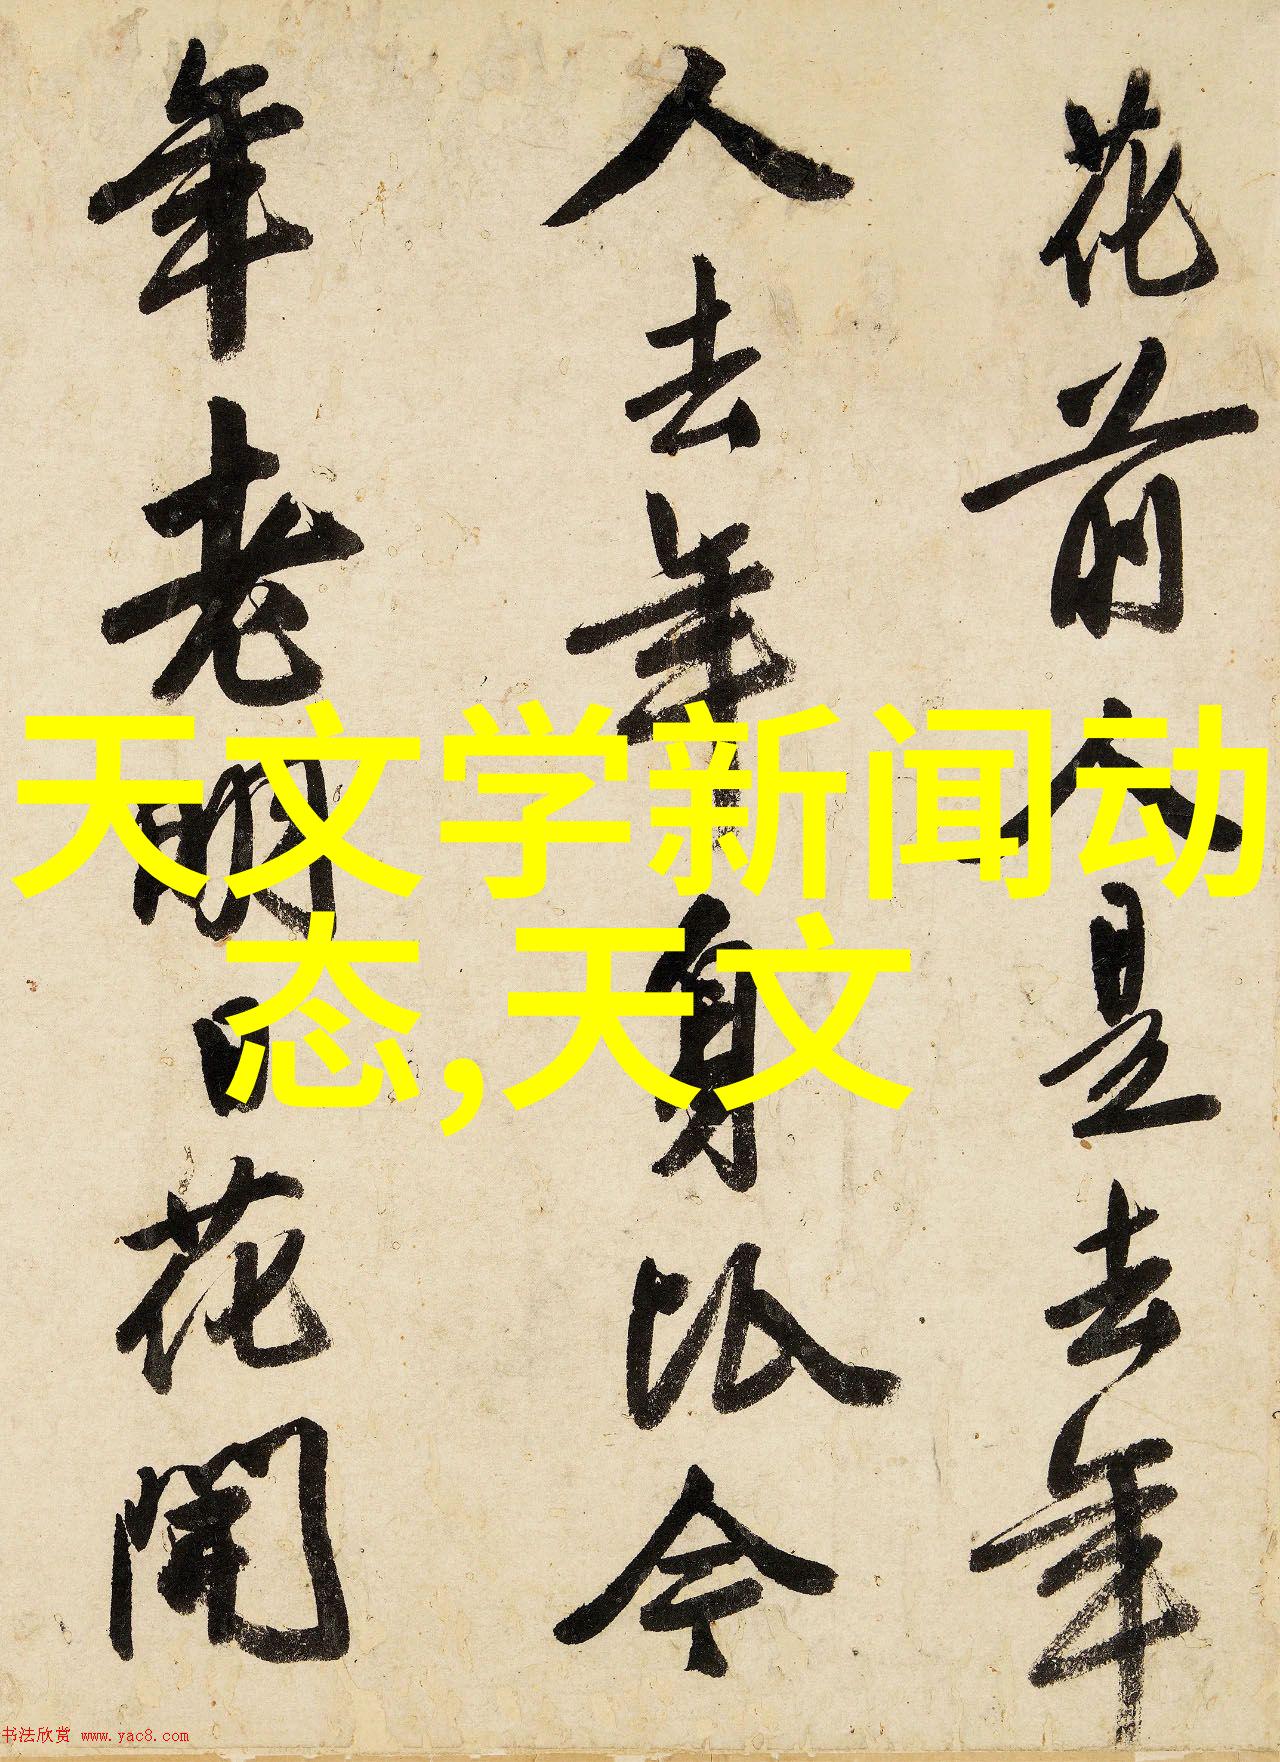 花前人是去年
人去年身比今
年老明日花開
天文学新闻动
态,天文
书法欣赏 www.yac8.com